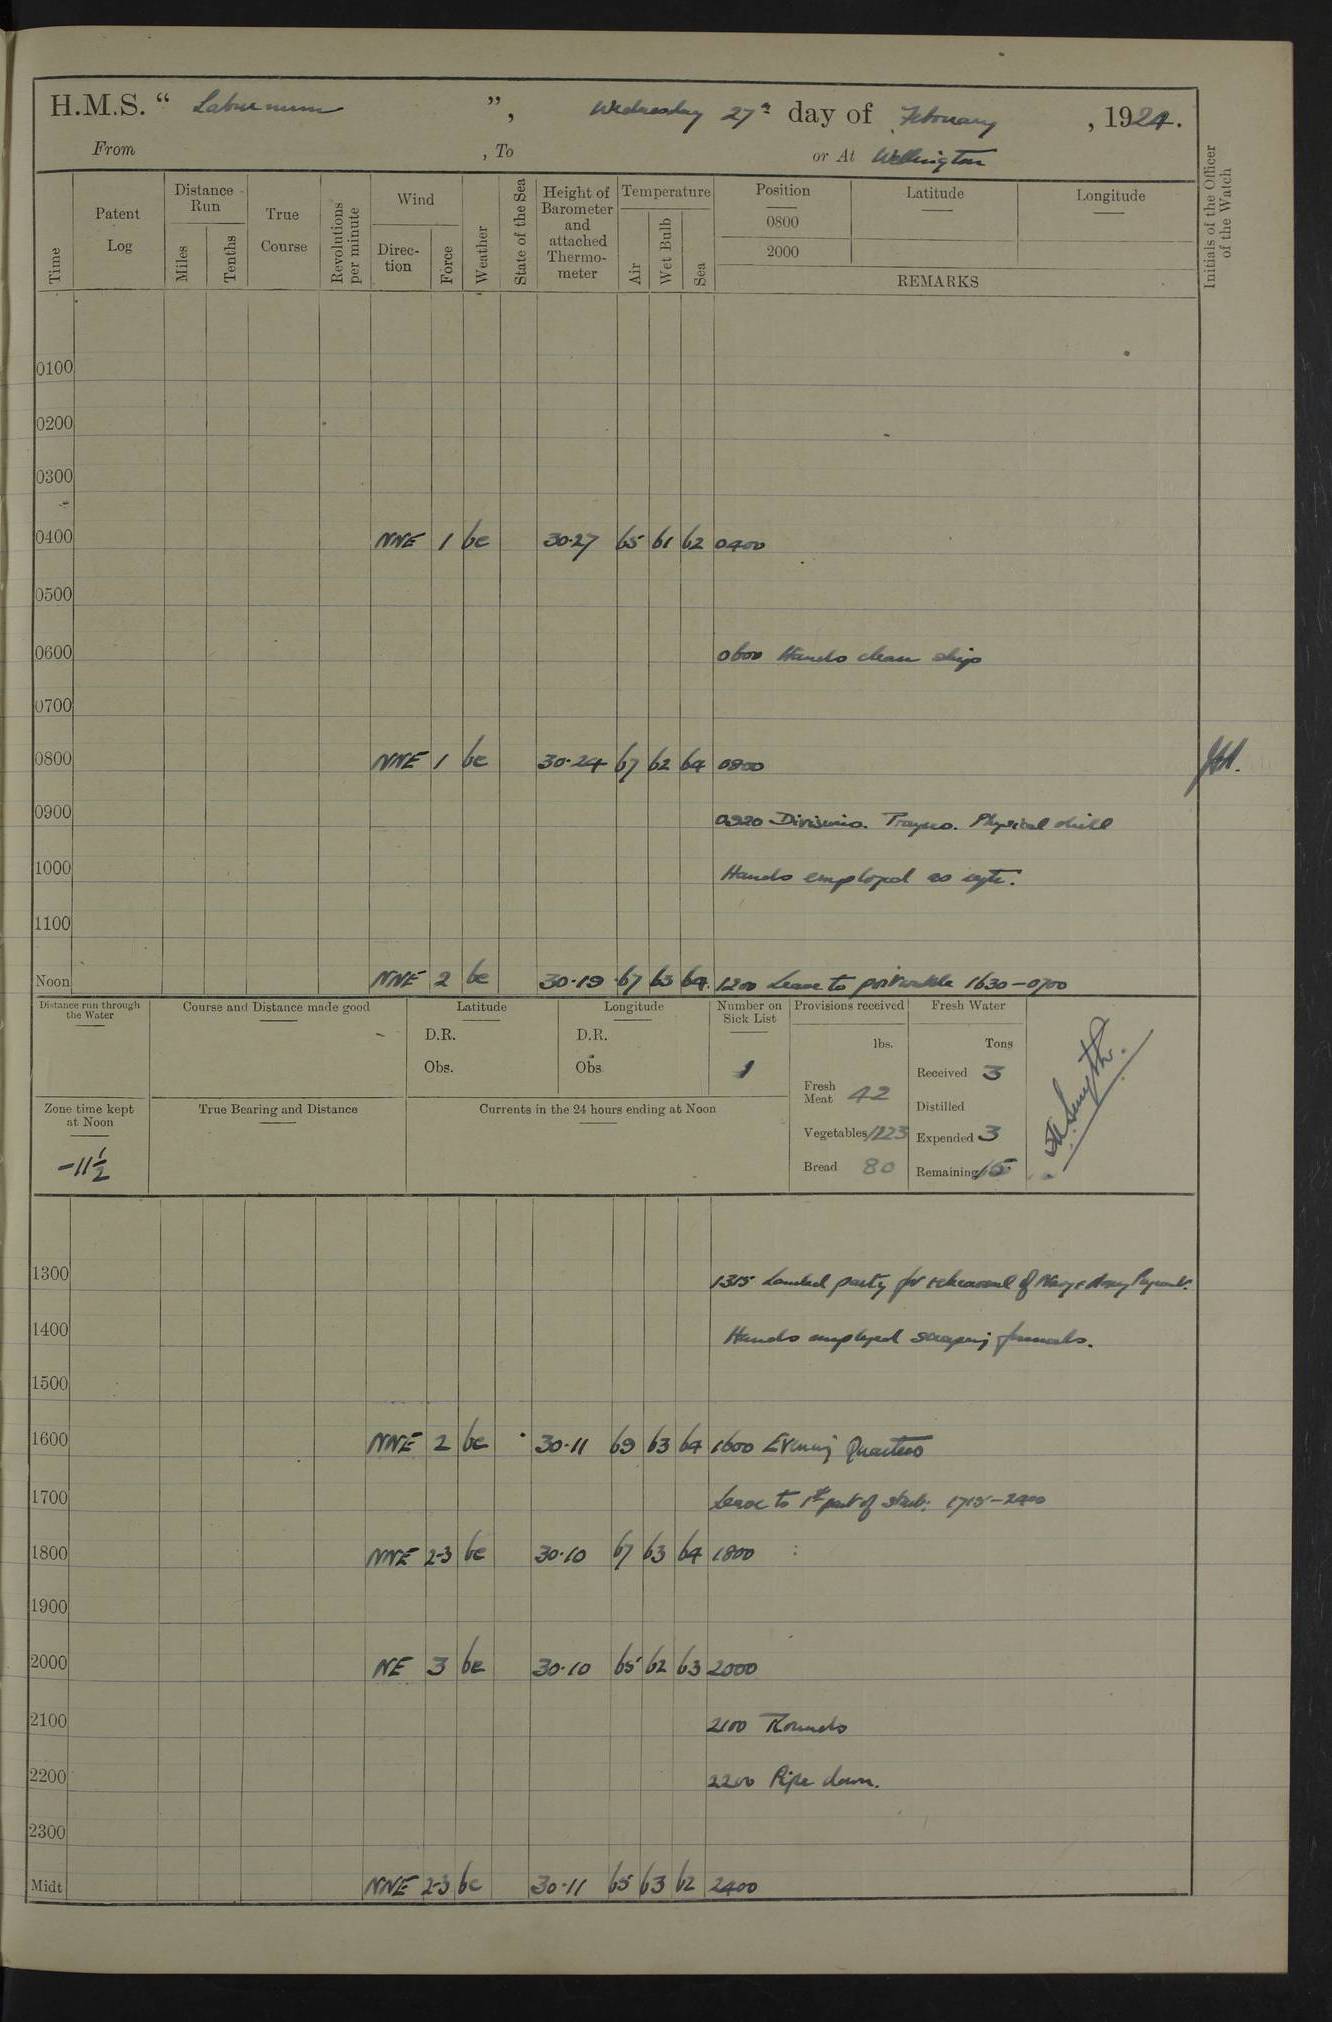 H.M.S. “ Laburnum ”, Wednesday 27th day of February, 1924.
From , To or At Wellington
Time
Patent Log
Distance Run
Miles
Tenths
True Course
Revolutions per minute
Wind
Direction
Force
Weather
State of the Sea
Height of Barometer and attached Thermometer
Temperature
Air
Wet Bulb
Sea
Position Latitude Longitude
0800
2000
REMARKS
Initials of the Officer of the Watch
0100
0200
0300
0400 NNE 1 bc 30·27 65 61 62 0400
0500
0600 0600 Hands clean ship
0700
0800 NNE 1 bc 30·24 67 62 64 0800
0900 0920 Divisions. Prayers. Physical drill
1000 Hands employed as
1100
Noon NNE 2 bc 30·19 67 63 64 1200 Leave to port watch 1630-0700
Distance run through the Water
Course and Distance made good
Latitude
D.R.
Obs.
Longitude
D.R.
Obs
Number on Sick List
1
Provisions received
lbs.
Fresh Meat 42
Vegetables 123
Bread 80
Fresh Water
Tons
Received 3
Distilled
Expended 3
Remaining 15
Zone time kept at Noon
-11½
True Bearing and Distance
Currents in the 24 hours ending at Noon
1300 1315 Landed party for rehearsal of Navy & Army Pageant.
1400 Hands employed scraping funnels.
1500
1600 NNE 2 bc 30·11 69 63 64 1600 Evening Quarters
1700 Leave to 1st part of starb: 1715-2400
1800 NNE 2-3 bc 30·10 67 63 64 1800
1900
2000 NE 3 bc 30·10 65 62 63 2000
2100 2100 Rounds
2200 2200 Pipe down.
2300
Midt NNE 2-3 bc 30·11 65 63 62 2400